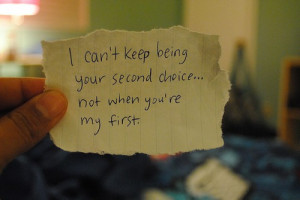 I can't keep being
your second choice...
not when you're
my first.